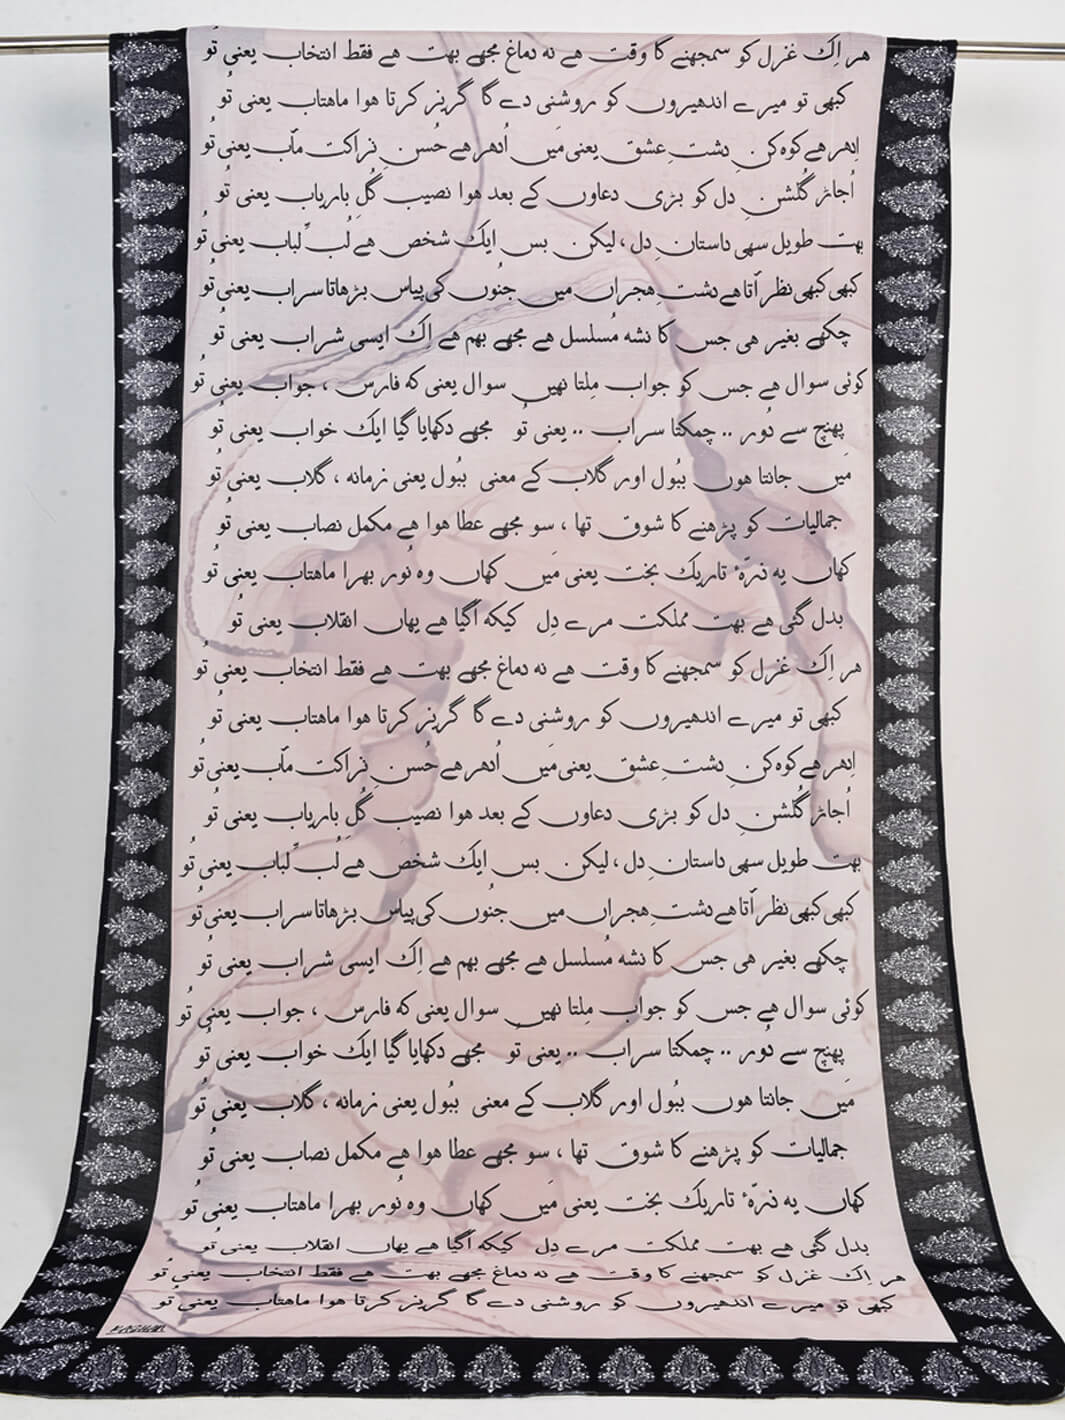 ہر اِک غزل کو سمجھنے کا وقت ہے نہ دماغ مجھے بہت ہے فقط انتخاب یعنی تُو
کبھی تو میرے اندھیروں کو روشنی دے گا گریز کرتا ہوا ماہتاب یعنی تُو
اِدھر ہے کوہ کنِ دشتِ عشق یعنی مَیں اُدھر ہے حُسنِ نزاکت مآب یعنی تُو
اُجاڑ گُلشنِ دِل کو بڑی دعاوں کے بعد ہوا نصیب گُلِ باریاب یعنی تُو
بہت طویل سہی داستانِ دِل، لیکن بس ایک شخص ہے لُبِّ لباب یعنی تُو
کبھی کبھی نظر آتا ہے دشتِ ہجراں میں جُنُوں کی پیاس بڑھاتا سراب یعنی تُو
چکھے بغیر ہی جس کا نشہ مُسلسل ہے مجھے بہم ہے اِک ایسی شراب یعنی تُو
کوئی سوال ہے جس کو جواب مِلتا نہیں سوال یعنی کہ فارس، جواب یعنی تُو
پہنچ سے دُور .. چمکتا سراب .. یعنی تُو مجھے دکھایا گیا ایک خواب یعنی تُو
مَیں جانتا ہوں ببُول اور گلاب کے معنی ببُول یعنی زمانہ، گلاب یعنی تُو
جمالیات کو پڑھنے کا شوق تھا، سو مجھے عطا ہوا ہے مکمل نصاب یعنی تُو
کہاں یہ ذرّۂ تاریک بخت یعنی مَیں کہاں وہ نُور بھرا ماہتاب یعنی تُو
بدل گئی ہے بہت مملکت مرے دِل کیکہ آگیا ہے یہاں انقلاب یعنی تُو
ہر اِک غزل کو سمجھنے کا وقت ہے نہ دماغ مجھے بہت ہے فقط انتخاب یعنی تُو
کبھی تو میرے اندھیروں کو روشنی دے گا گریز کرتا ہوا ماہتاب یعنی تُو
اِدھر ہے کوہ کنِ دشتِ عشق یعنی مَیں اُدھر ہے حُسنِ نزاکت مآب یعنی تُو
اُجاڑ گُلشنِ دِل کو بڑی دعاوں کے بعد ہوا نصیب گُلِ باریاب یعنی تُو
بہت طویل سہی داستانِ دِل، لیکن بس ایک شخص ہے لُبِّ لباب یعنی تُو
کبھی کبھی نظر آتا ہے دشتِ ہجراں میں جُنُوں کی پیاس بڑھاتا سراب یعنی تُو
چکھے بغیر ہی جس کا نشہ مُسلسل ہے مجھے بہم ہے اِک ایسی شراب یعنی تُو
کوئی سوال ہے جس کو جواب مِلتا نہیں سوال یعنی کہ فارس، جواب یعنی تُو
پہنچ سے دُور .. چمکتا سراب .. یعنی تُو مجھے دکھایا گیا ایک خواب یعنی تُو
مَیں جانتا ہوں ببُول اور گلاب کے معنی ببُول یعنی زمانہ، گلاب یعنی تُو
جمالیات کو پڑھنے کا شوق تھا، سو مجھے عطا ہوا ہے مکمل نصاب یعنی تُو
کہاں یہ ذرّۂ تاریک بخت یعنی مَیں کہاں وہ نُور بھرا ماہتاب یعنی تُو
بدل گئی ہے بہت مملکت مرے دِل کیکہ آگیا ہے یہاں انقلاب یعنی تُو
ہر اِک غزل کو سمجھنے کا وقت ہے نہ دماغ مجھے بہت ہے فقط انتخاب یعنی تُو
کبھی تو میرے اندھیروں کو روشنی دے گا گریز کرتا ہوا ماہتاب یعنی تُو